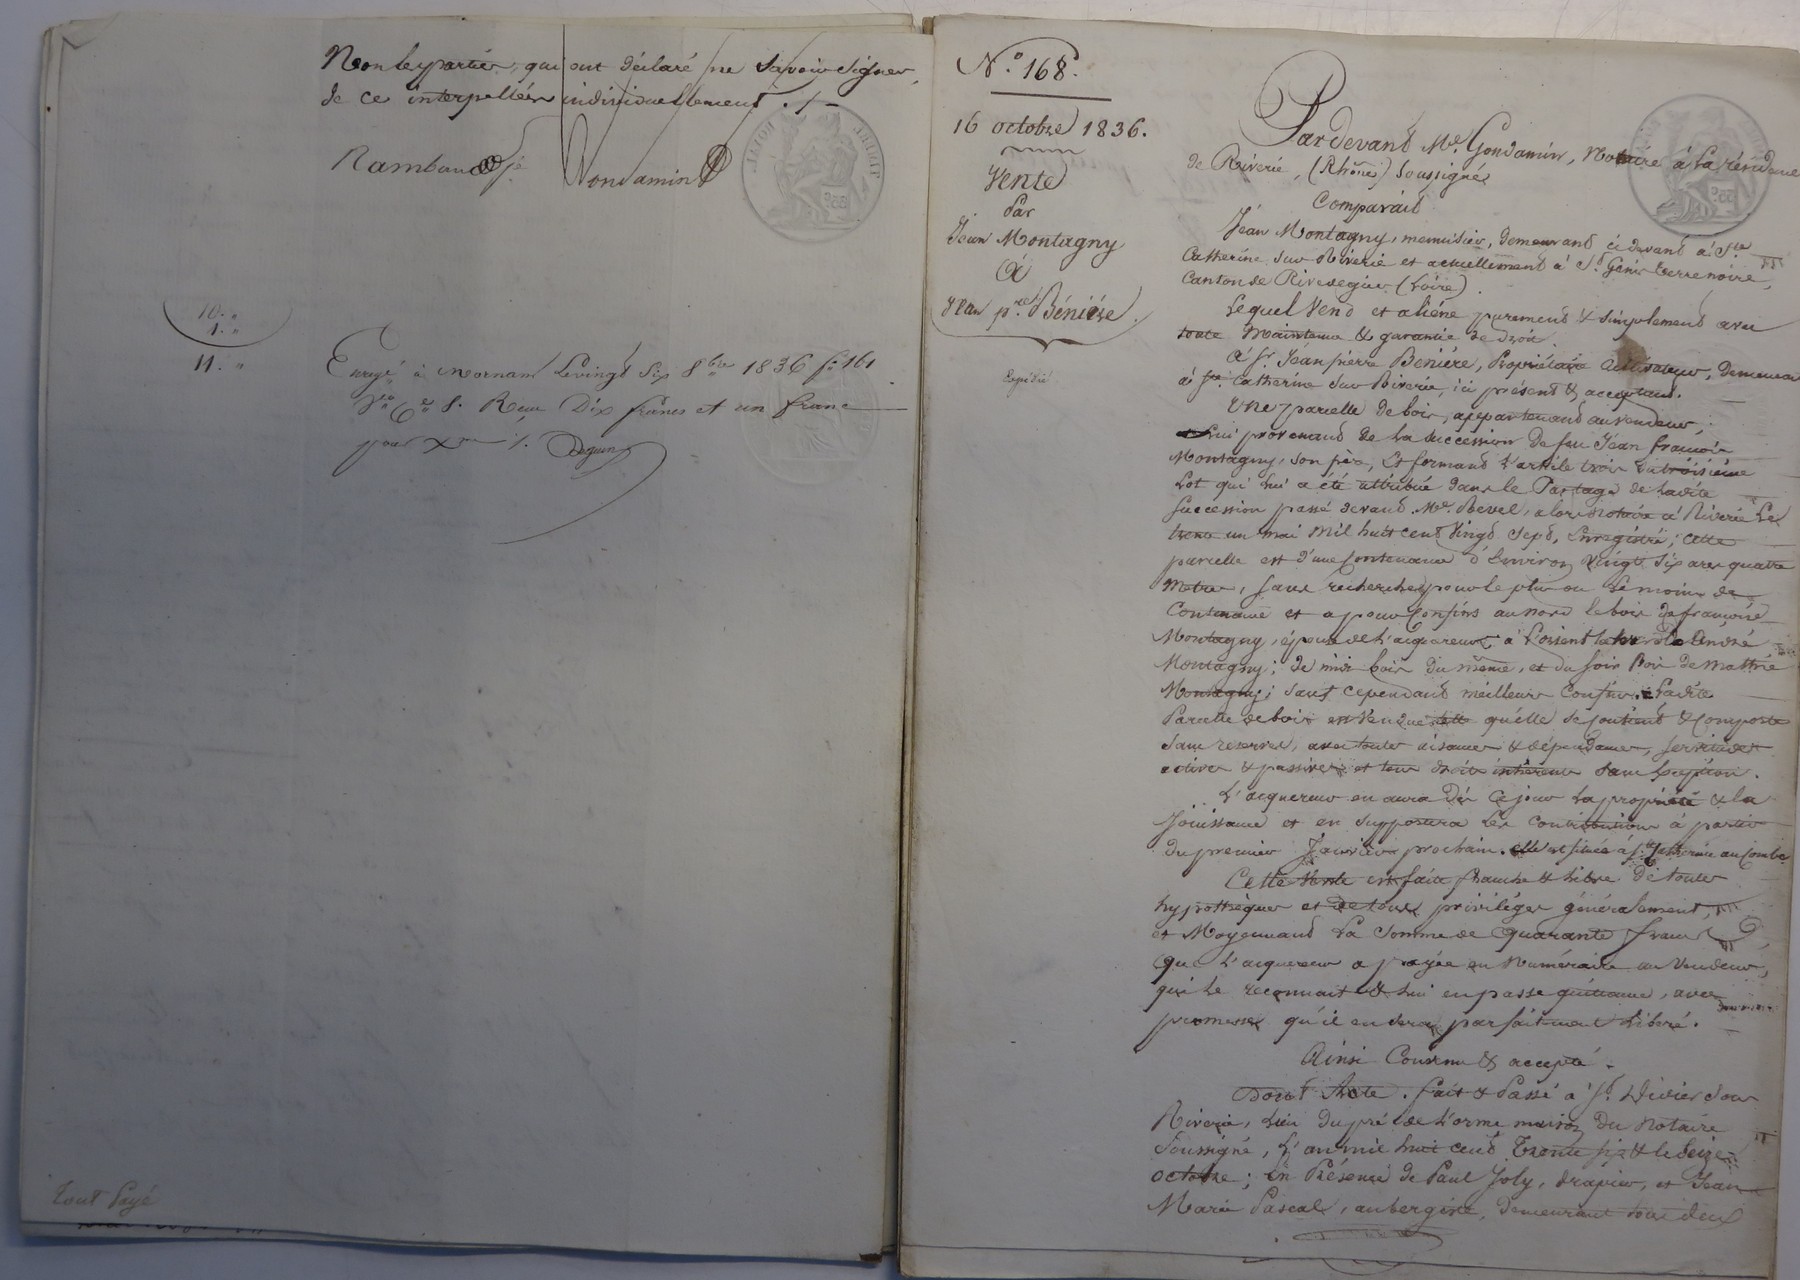 Non les parties, qui ont déclaré ne savoir signer,
de ce interpellées individuellement ./-
Rambaud Gondamin
10. "
1. "
11. "
Enregé à Mornant le vingt six 8bre 1836 fo 161
Vo Ces 8. Reçu Dix francs et un franc
pour Xme /. Deguin
Tout Payé
N.o 168.
16 octobre 1836.
Vente
Par
Jean Montagny
à
Jean p.re Bénière.
Expédié
Pardevant Me. Gondamin, Notaire à la résidence
de Riverie, (Rhône) Soussigné
Comparait
Jean Montagny, menuisier, demeurant ci devant à Ste
Catherine sur Riverie et actuellement à St. Genis terrenoire,
Canton de Rivedegier (Loire).
Lequel Vend et aliène purement & simplement avec
toute Maintenue & garantie de droit.
A Sr. Jean pierre Benière, Propriétaire Cultivateur, demeurant
à Ste Catherine sur Riverie, ici présent & acceptant.
Une parcelle de bois, appartenant au vendeur,
lui provenant de la succession de feu Jean françois
Montagny, son père, et formant l'article trois du troisième
Lot qui lui a été attribué dans le Partage de ladite
Succession passé devant Me. Revel, alors Notaire à Riverie Le
trente un mai mil huit cent vingt sept, Enregistré; cette
parcelle est d'une Contenance d'Environ Vingt six ares quatre
Mètres, sans recherches pour le plus ou le moins de
Contenance et a pour Confins au nord le bois de françoise
Montagny, épouse de l'acquereur, à l'orient André
Montagny; de midi bois du même, et du soir Bois de Mathie
Montagny; sauf cependant meilleurs Confins. Ladite
Parcelle de bois est Vendue telle qu'elle se contient & comporte
sans reserves, avec toutes aisances & dépendances, servitudes
actives & passives et tous droits inhérents sans Exception.
L'acquereur en aura Dès ce jour la propriété & la
Jouissance et en supportera les contributions à partir
du premier Janvier prochain. elle est située à Ste Catherine au Combe
Cette Vente est faite franche & libre de toutes
hypothèques et de tous privilèges généralement,
et Moyennant La Somme de Quarante francs
Que l'acquereur a payée en Numéraire au Vendeur,
qui le reconnait & lui en passe quittance, avec
promesse qu'il en sera parfaitement Libéré.
Ainsi Convenu & accepté.
Dont Acte. fait & Passé à St. Didier sous
Riverie, lieu du pré de l'orme maison du Notaire
Soussigné, L'an mil huit cent Trente six & le seize
octobre; En Présence de Paul Joly, drapier, et Jean
Marie Pascal, aubergiste, demeurant tous deux